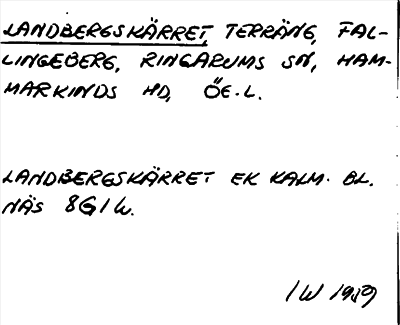 LANDBERGSKÄRRET, TERRÄNG, FAL-
LINGEBERG, RINGARUMS SN, HAM-
MARKINDS HD, ÖE.L.
LANDBERGSKÄRRET EK KALM. BL.
NÄS 8G1W.
IW 1989